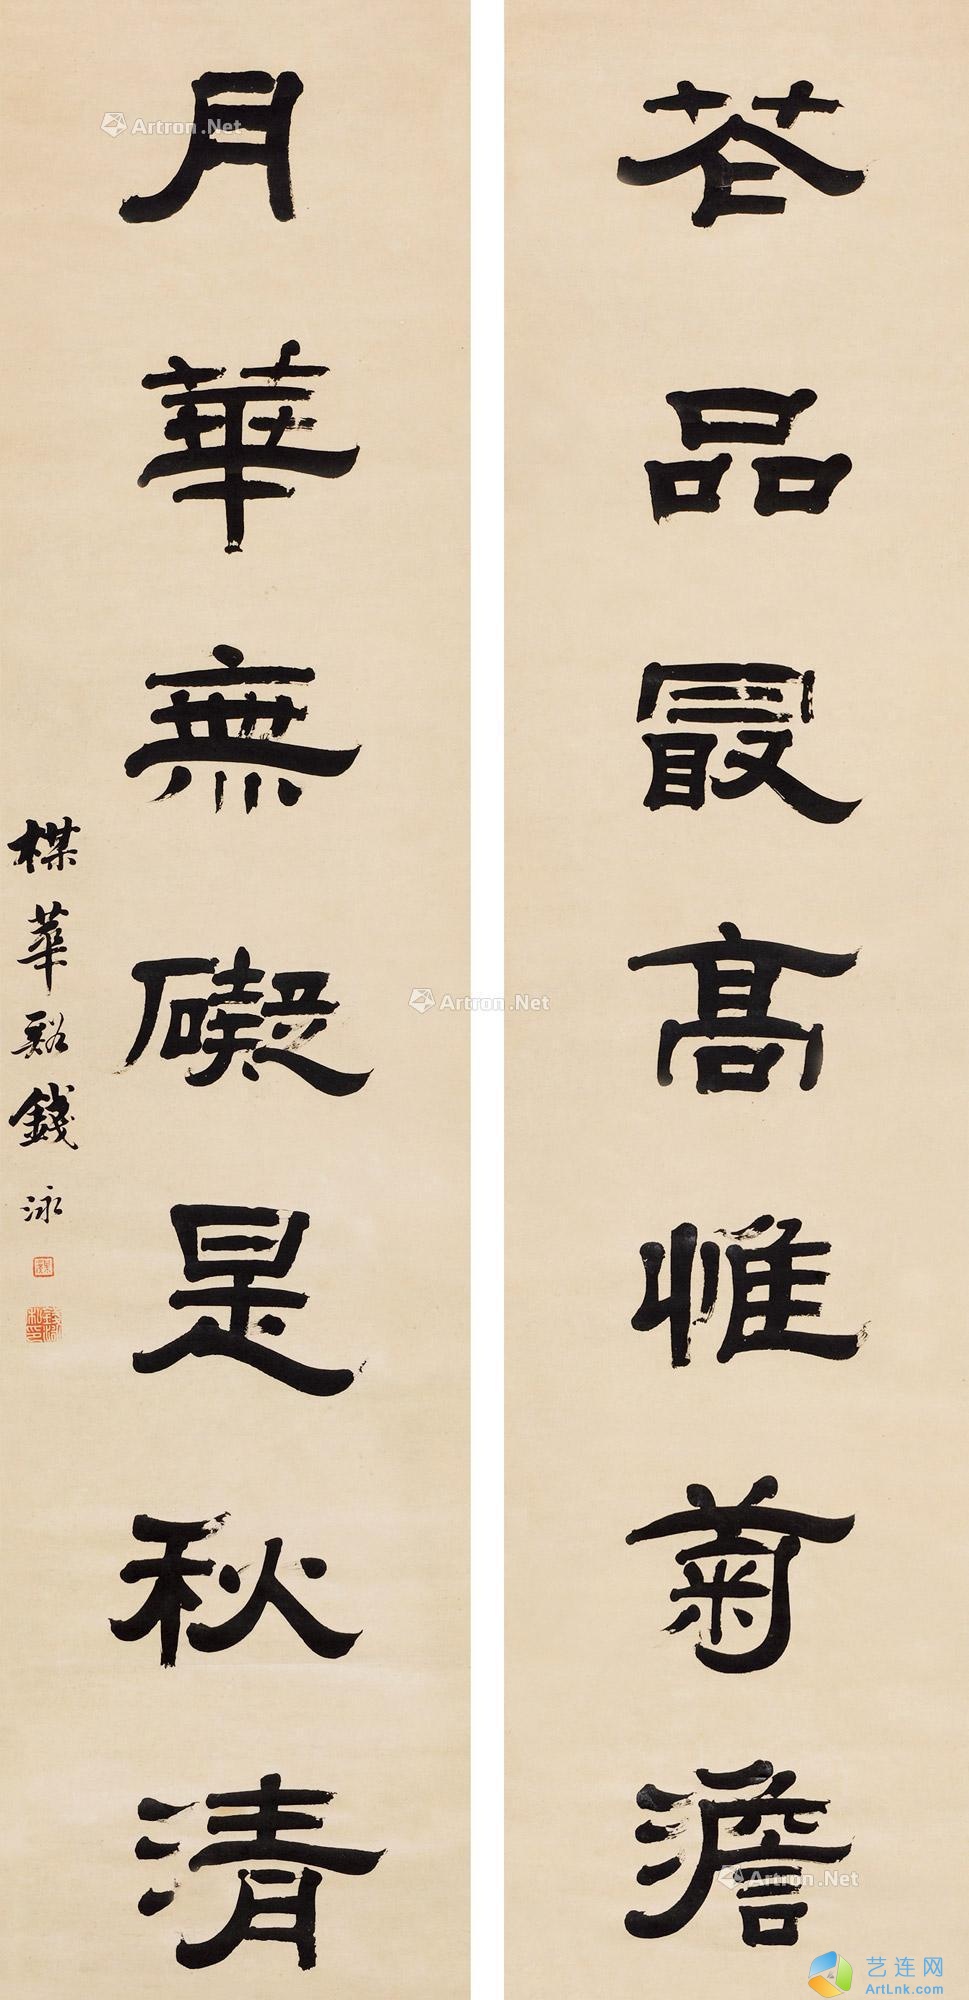 花品最高惟菊澹
月華無礙是秋清
楳華谿錢泳
Artron.Net
Artron.Net
Artron.Net
艺连网
ArtLnk.com